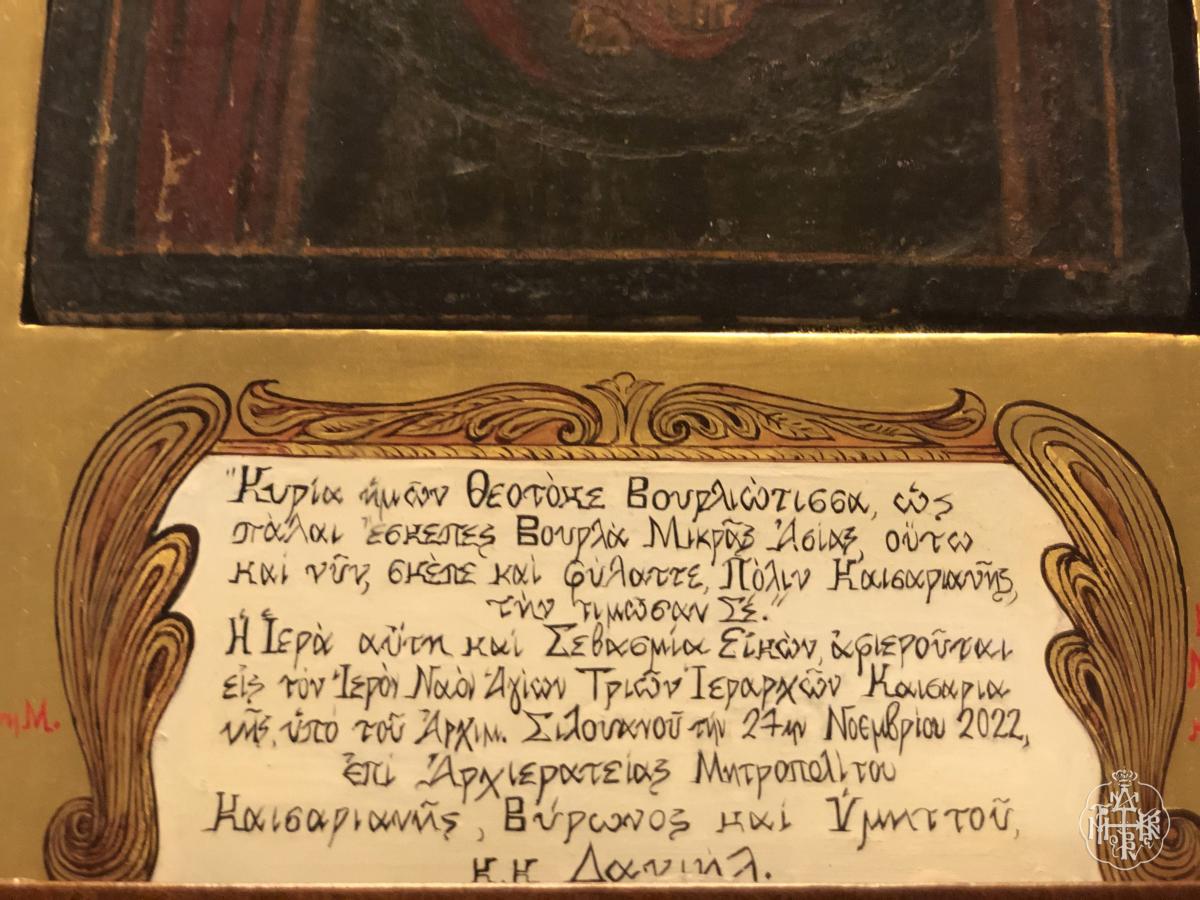 "Κυρία ἡμῶν Θεοτόκε Βουρλιώτισσα, ὡς
πάλαι ἔσκεπες Βουρλὰ Μικρᾶς Ἀσίας, οὕτω
καὶ νῦν, σκέπε καὶ φύλαττε, Πόλιν Καισαριανῆς,
τὴν τιμῶσαν Σέ."
Ἡ Ἱερὰ αὕτη καὶ Σεβασμία Εἰκών, ἀφιεροῦται
εἰς τὸν Ἱερὸν Ναὸν Ἁγίων Τριῶν Ἱεραρχῶν Καισαρια
νῆς, ὑπὸ τοῦ Ἀρχιμ. Σιλουανοῦ τὴν 27ην Νοεμβρίου 2022,
ἐπὶ Ἀρχιερατείας Μητροπολίτου
Καισαριανῆς, Βύρωνος καὶ Ὑμηττοῦ,
κ.κ Δανιήλ.